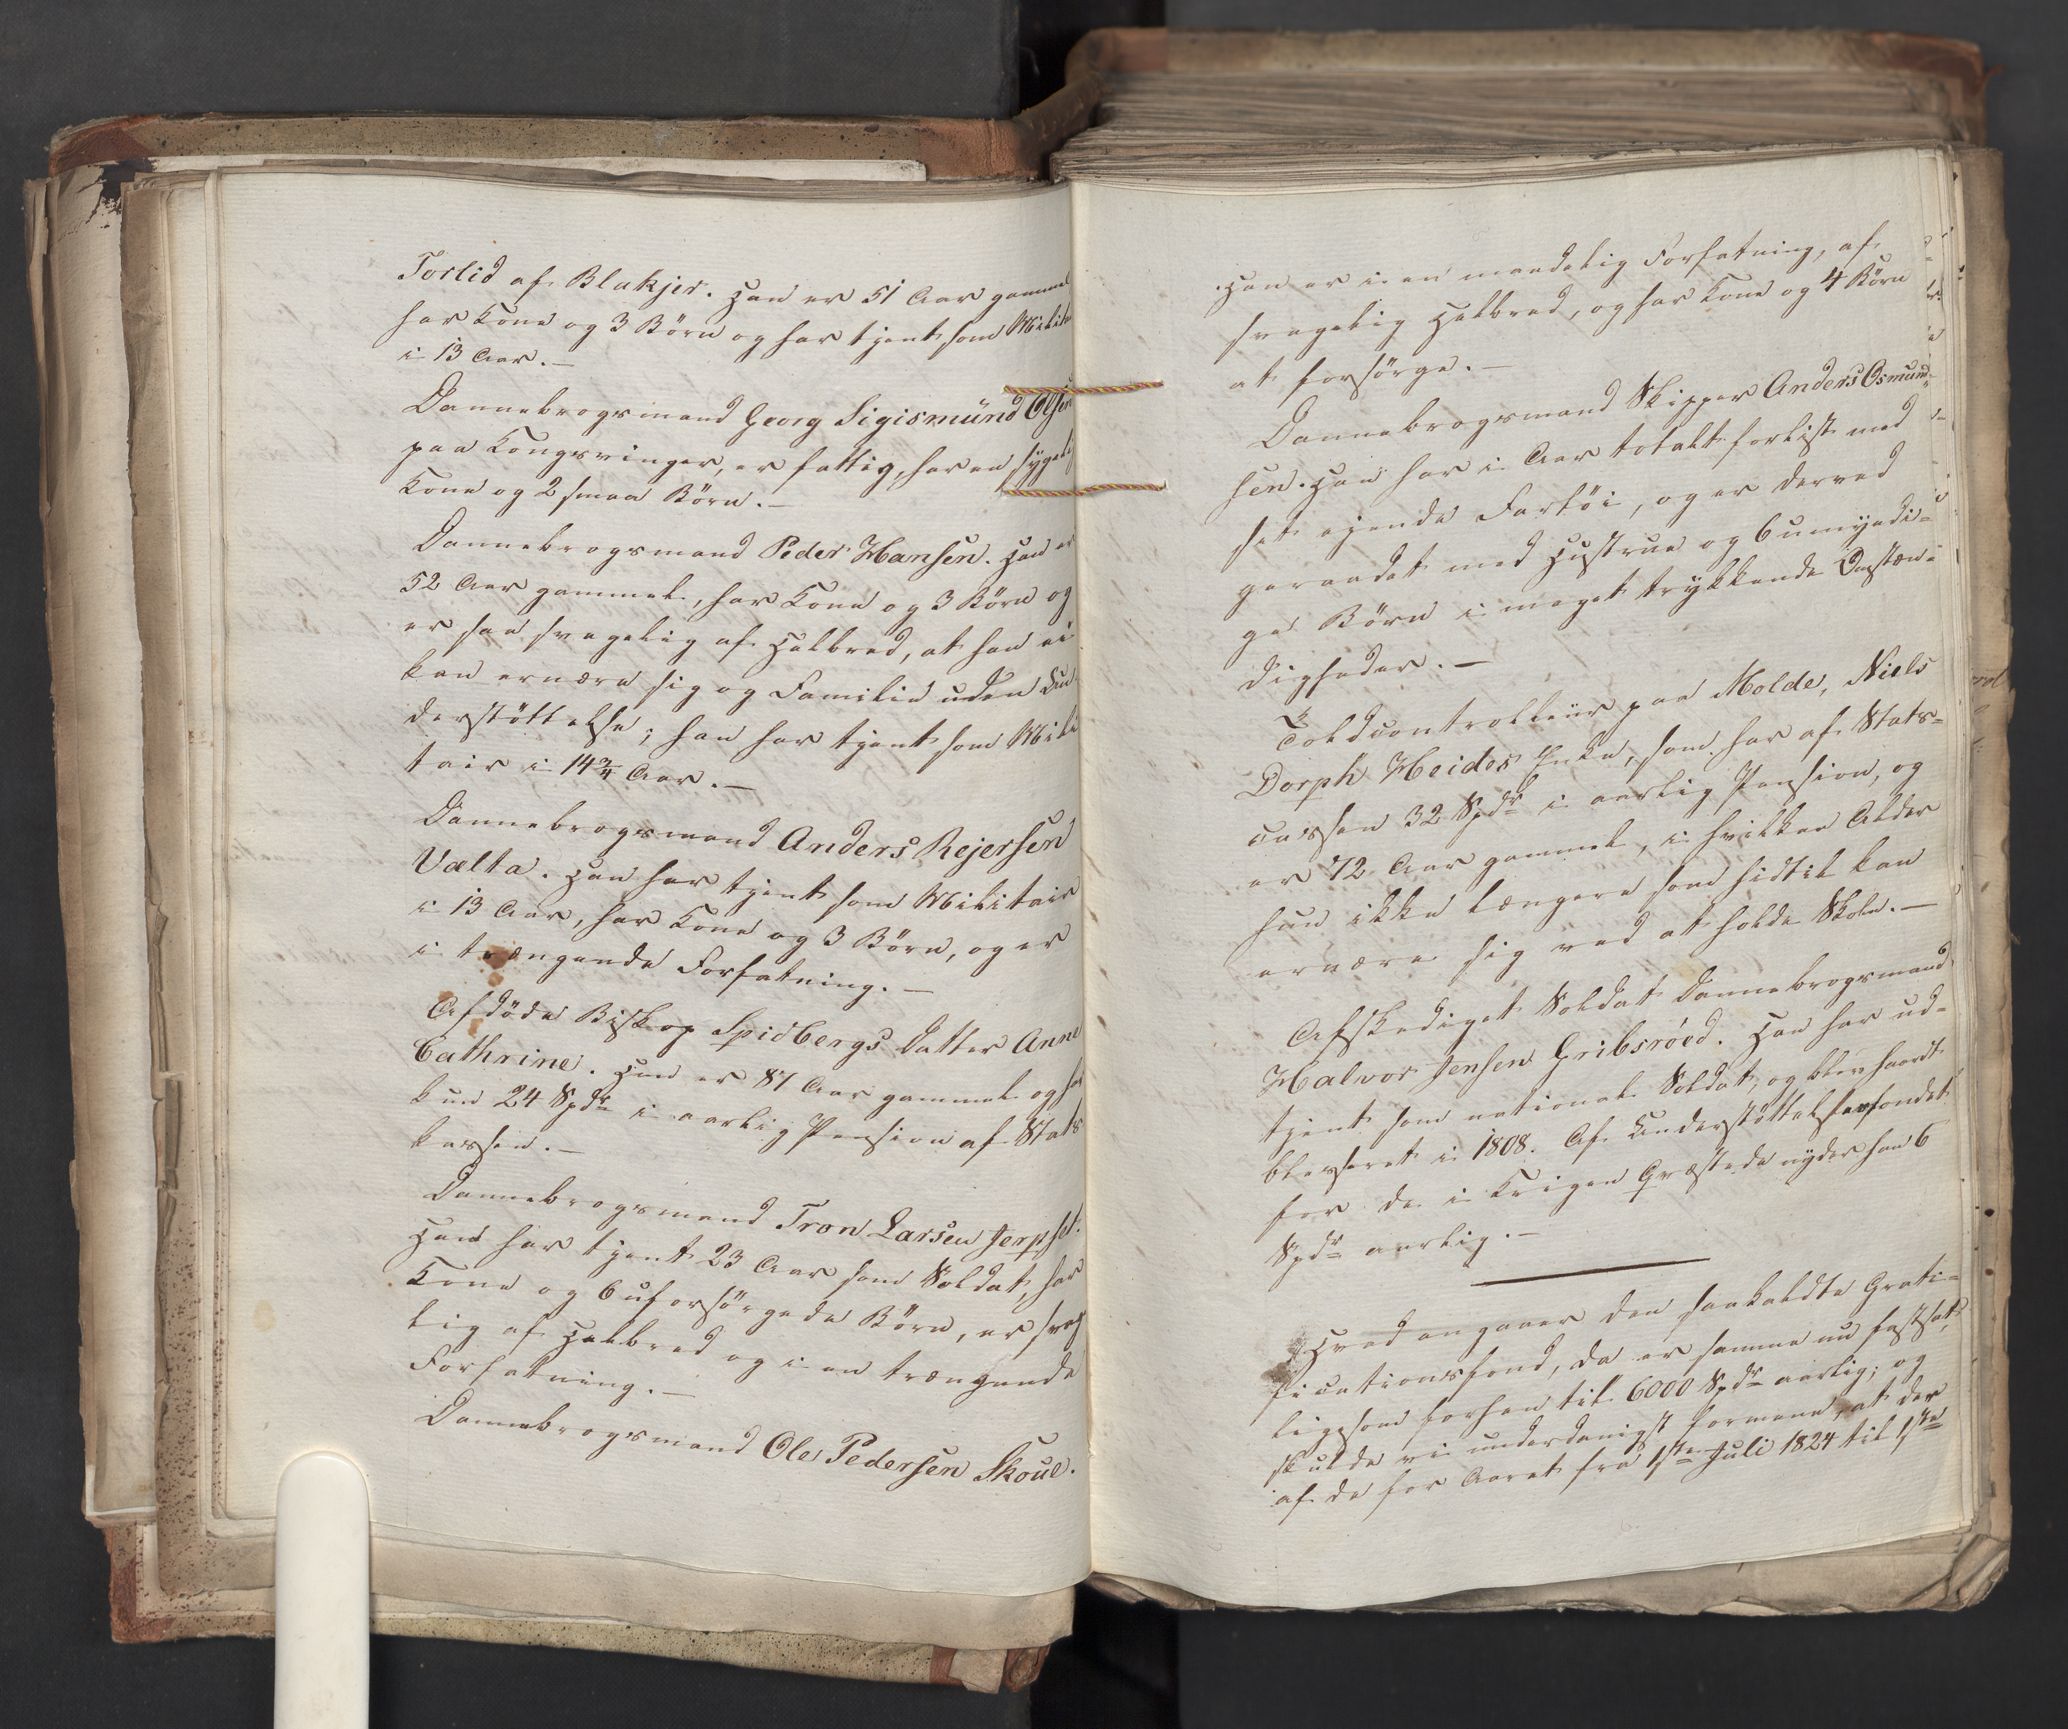 Torlid af Blakjer. Han er 51 Aar gammel
har Kone og 3 Börn og har tjent som Milite
i 13 Aar. —
Dannebrogsmand Georg Sigismünd Olsen
paa Kongsvinger, er fattig, har en sygelig
Kone og 2 smaa Börn. —
Dannebrogsmand Peder Hansen. Han er
52 Aar gammel, har Kone og 3 Börn og
er saa svagelig af Helbred, at han ei
kan ernære sig og Familie uden Un-
derstöttelse; han har tjent som Mili
tair i 14 3/4 Aar. —
Dannebrogsmand Anders Rejersen
Vælta. Han har tjent som Militair
i 13 Aar, har Kone og 3 Börn, og er
i trængende Forfatning. —
Afdöde Biskop Spidbergs Datter Anne
Cathrine. Hun er 87 Aar gammel og har
kun 24 Spdr i aarlig Pension af Stats
kassen. —
Dannebrogsmand Tron Larsen Jerpset.
Han har tjent 23 Aar som Soldat, har
Kone og 6 uforsörgede Börn, er svag
lig af Helbred og i en trængende
Forfatning. —
Dannebrogsmand Ole Pedersen Skoue.
Han er i en maadelig Forfatning, af
svagelig Helbred, og har Kone og 4 Börn
at forsörge. —
Dannebrogsmand Skipper Anders Osmund-
sen. Han har i Aar totalt forlist med
sit ejende Fartöi, og er derved
geraadet med Hustrue og 6 umyndi-
ge Börn i meget trykkende Omstæn-
digheder. —
Toldcontrolleur paa Molde, Niels
Dorph Heides Enke, som har af Stats-
cassen 32 Spdr i aarlig Pension, og
er 72 Aar gammel, i hvilken Alder
hun ikke længere som hidtil kan
ernære sig ved at holde Skole. —
Afskediget Soldat Dannebrogsmand
Halvor Jensen Gribsröed. Han har ud-
tjent som national Soldat, og blev haardt
blesseret i 1808. Af Understöttelsesfondet
for de i Krigen Qvæstede nyder han 6
Spdr aarlig. —
Hvad angaaer den saakaldte Grati-
ficationsfond, da er samme nu fastsat,
ligesom forhen til 6000 Spdr aarlig; og
skulde vi underdanigst formene, at der
af de for Aaret fra 1ste Juli 1824 til 1ste